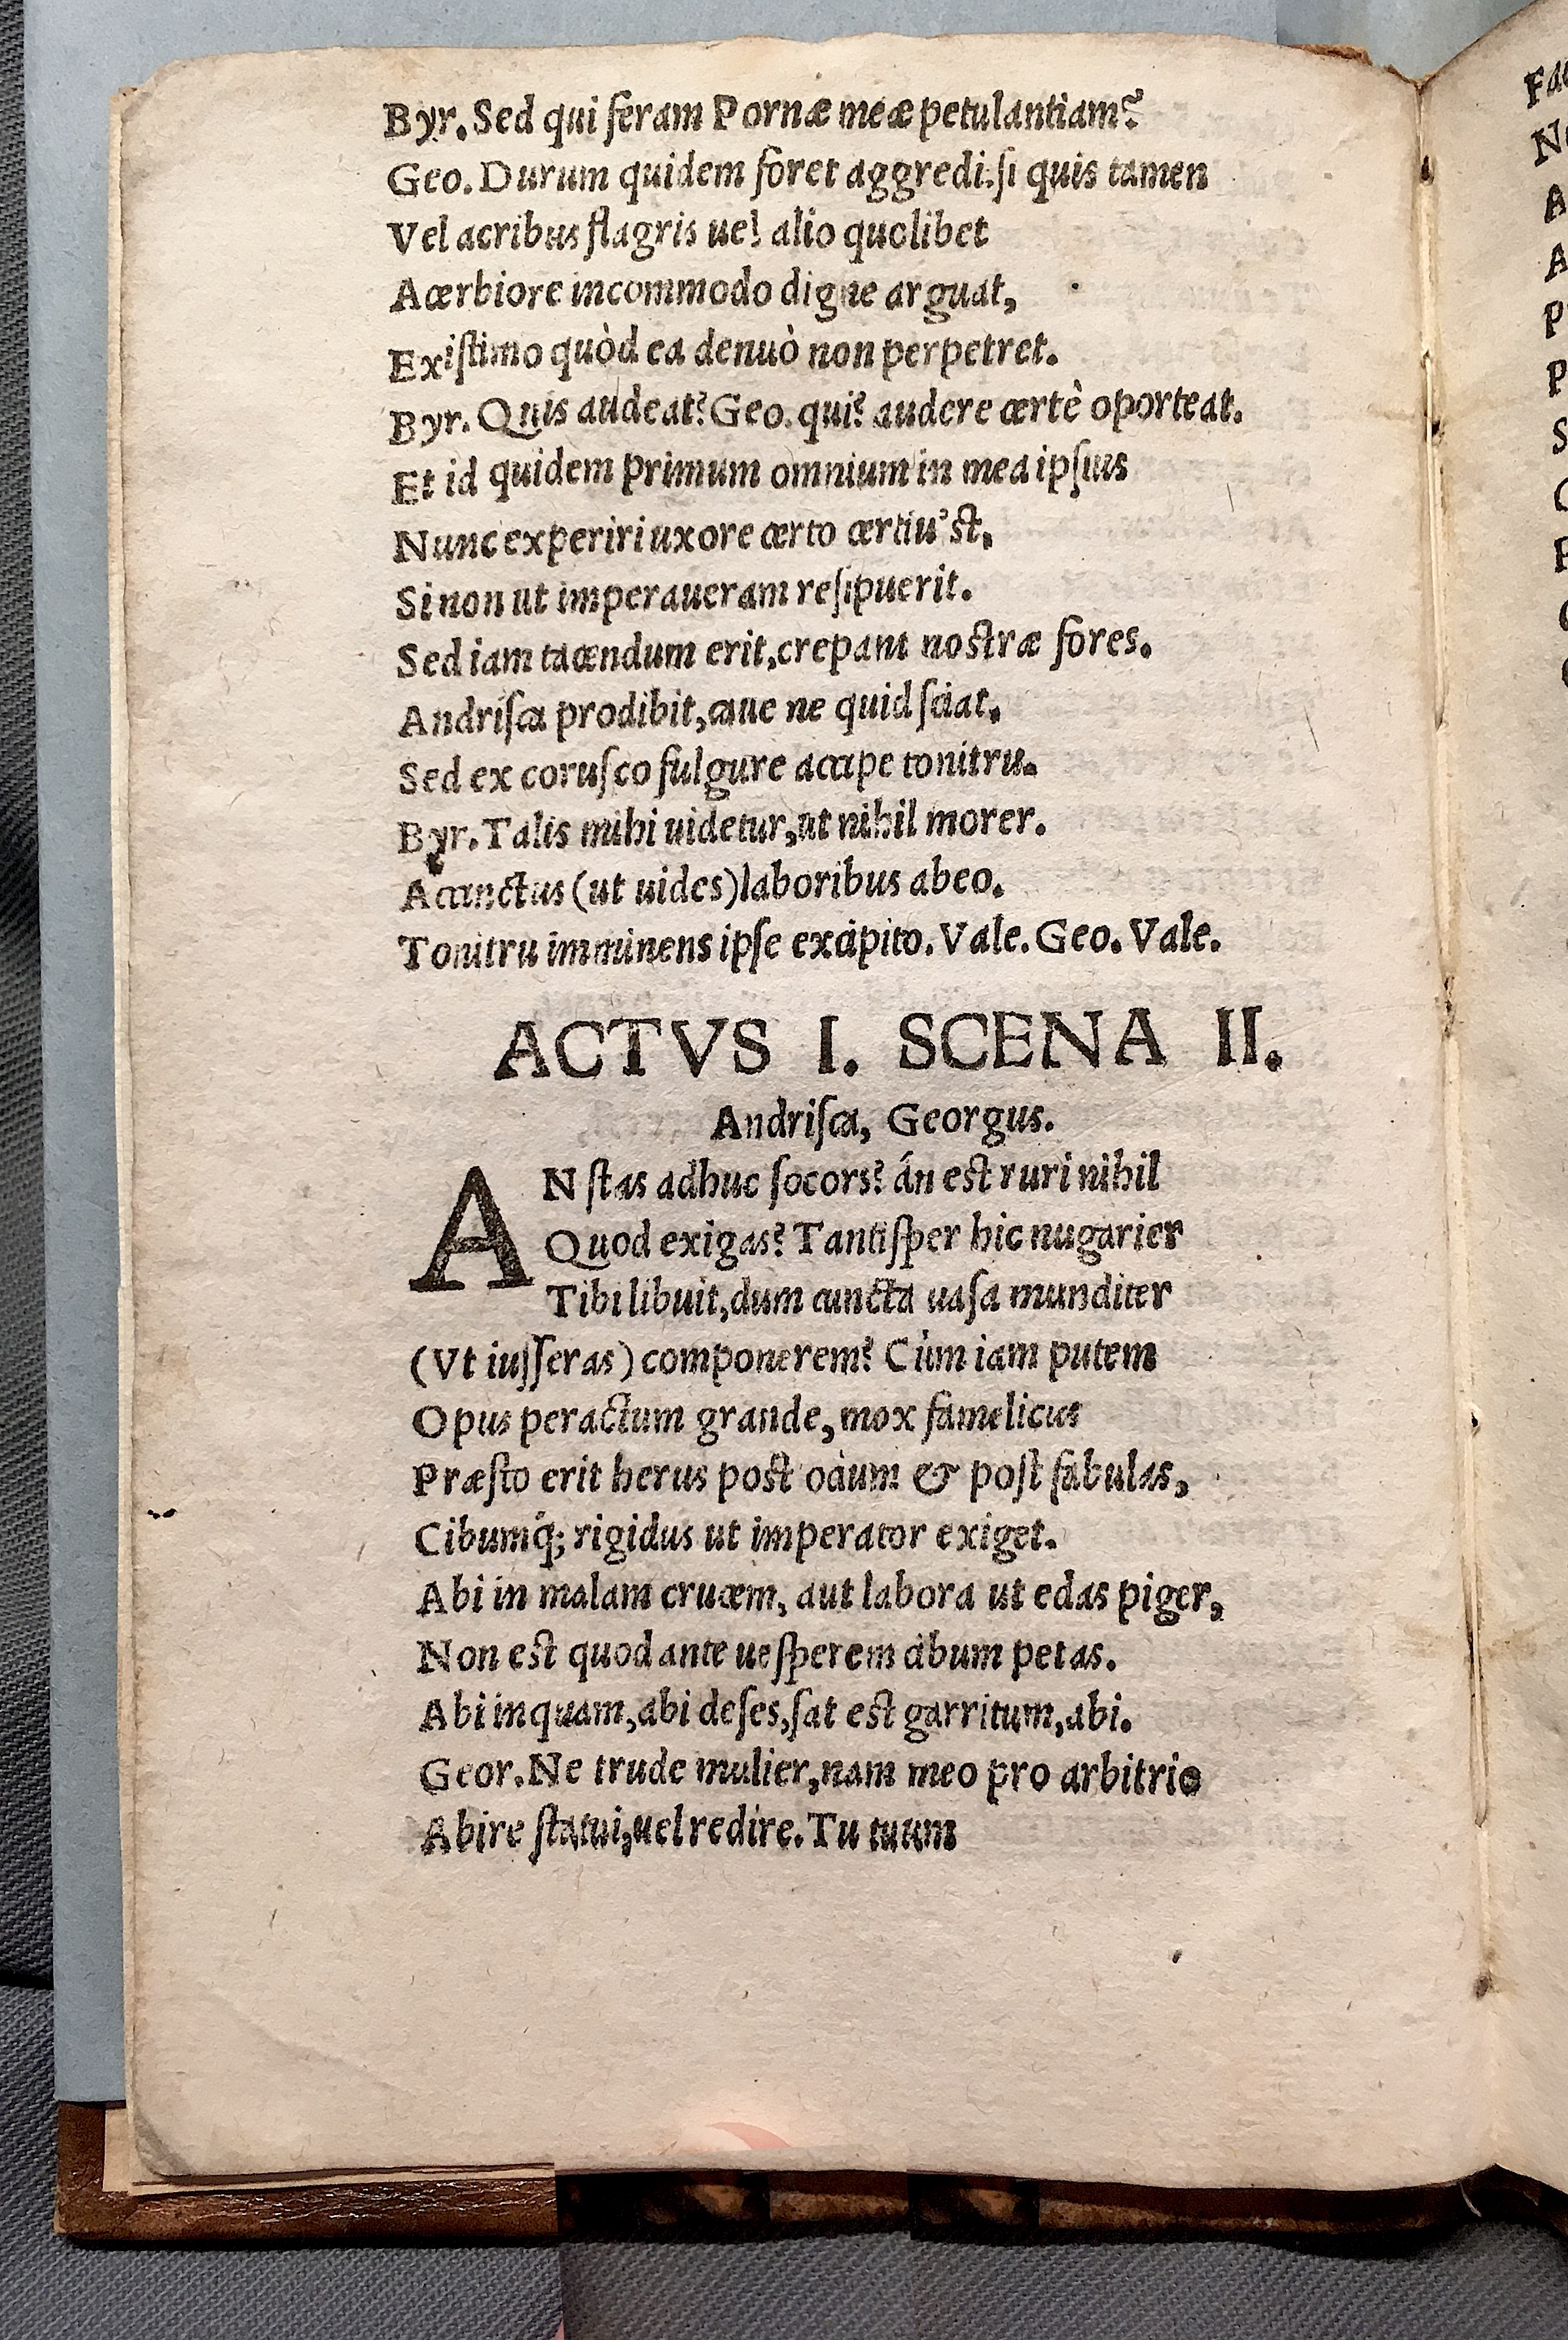 Byr. Sed qui ſeram Pornæ meæ petulantiam?
Geo. Durum quidem foret aggredi. ſi quis tamen
Vel acribus flagris uel alio quolibet
Acerbiore incommodo digne arguat,
Exiſtimo quòd ea denuò non perpetret.
Byr. Quis audeat? Geo. qui? audere certè oporteat.
Et id quidem primum omnium in mea ipſius
Nunc experiri uxore certo certiu'st,
Si non ut imperaueram reſipuerit.
Sed iam tacendum erit, crepant nostræ fores.
Andriſca prodibit, caue ne quid ſciat,
Sed ex coruſco fulgure accipe tonitru.
Byr. Talis mihi uidetur, ut nihil morer.
Accinctus (ut uides) laboribus abeo.
Tonitru imminens ipſe excipito. Vale. Geo. Vale.
ACTVS I. SCENA II.
Andriſca, Georgus.
AN ſtas adhuc ſocors? án est ruri nihil
Quod exigas? Tantiſper hic nugarier
Tibi libuit, dum cuncta uaſa munditer
(Vt iuſſeras) componerem? Cùm iam putem
Opus peractum grande, mox famelicus
Præſto erit herus post ociumm & poſt fabulas,
Cibumq́; rigidus ut imperator exiget.
Abi in malam crucem, aut labora ut edas piger,
Non est quod ante ueſperem cibum petas.
Abi inquam, abi deſes, ſat est garritum, abi.
Geor. Ne trude mulier, nam meo pro arbitrio
Abire ſtatui, uel redire. Tu tuum
Fac
A
A
P
S